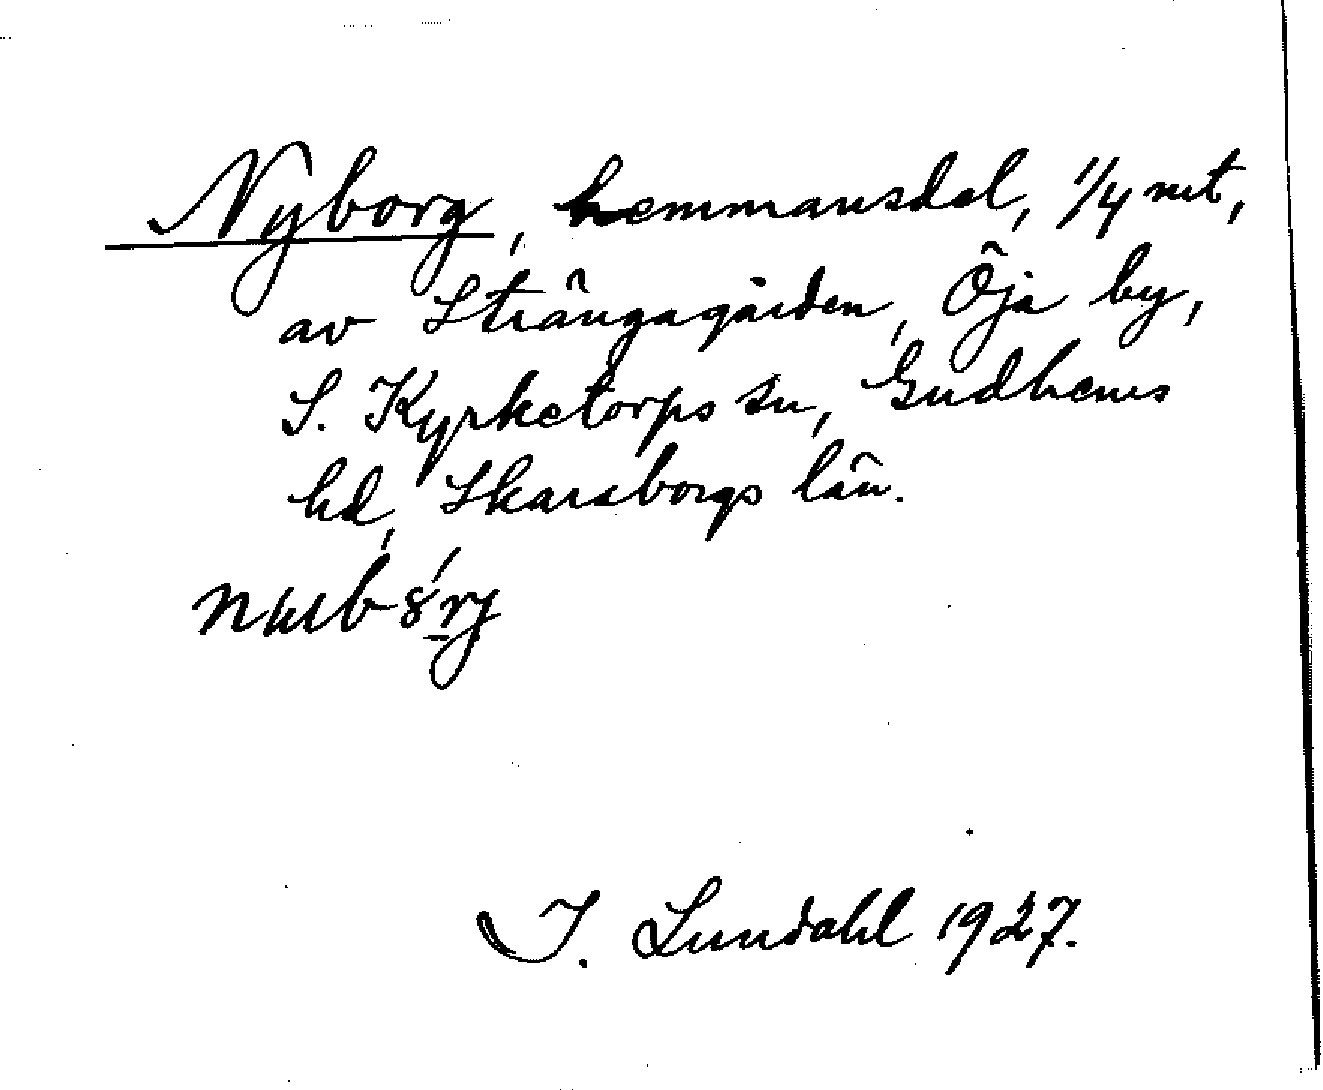 Nyborg, hemmansdel, 1/4 mt,
av Strängagården, Öja by,
S. Kyrketorps sn, Gudhems
hd, Skaraborgs län.
I. Lundahl 1927.